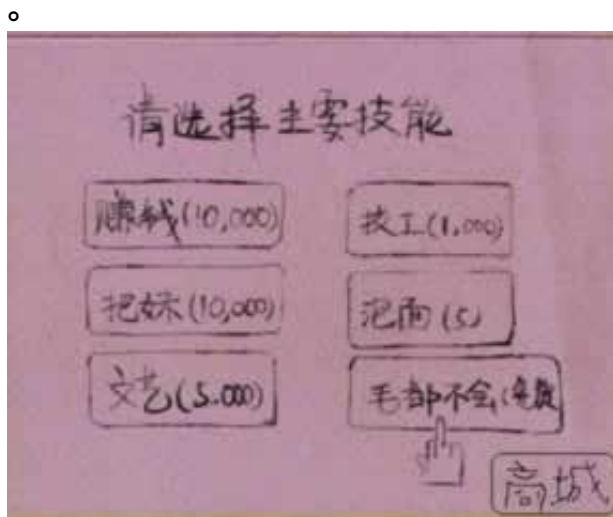 。
请选择主要技能
赚钱(10,000)
技工(1,000)
把妹(10,000)
泡面(5)
文艺(5.000)
毛都不会(免费
商城